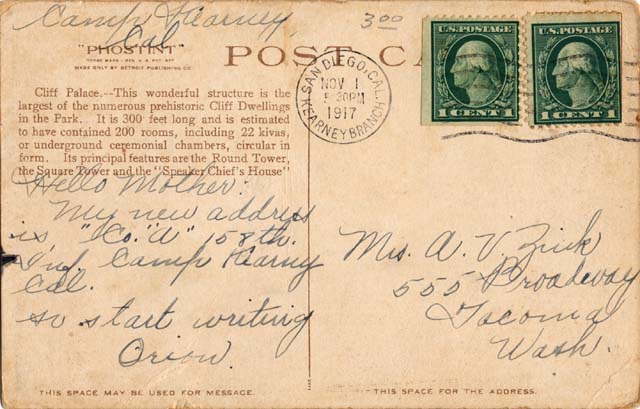 Camp Kearney,
Cal.
3.00
"PHOSTINT"
TRADE MARK - REG. U.S. PAT. OFF.
MADE ONLY BY DETROIT PUBLISHING CO.
POST CA
U.S. POSTAGE
1 CENT 1
U.S. POSTAGE
1 CENT 1
SAN DIEGO, CAL.
NOV 1
30PM
1917
KEARNEY BRANCH
Cliff Palace.—This wonderful structure is the
largest of the numerous prehistoric Cliff Dwellings
in the Park. It is 300 feet long and is estimated
to have contained 200 rooms, including 22 kivas,
or underground ceremonial chambers, circular in
form. Its principal features are the Round Tower,
the Square Tower and the "Speaker Chief's House"
Hello Mother:
My new address
is, "Co. "A" 158th.
Inf. Camp Kearny
Cal.
so start writing
Orion.
Mrs. A. V. Zink
555 Broadway
Tacoma
Wash.
THIS SPACE MAY BE USED FOR MESSAGE.
THIS SPACE FOR THE ADDRESS.